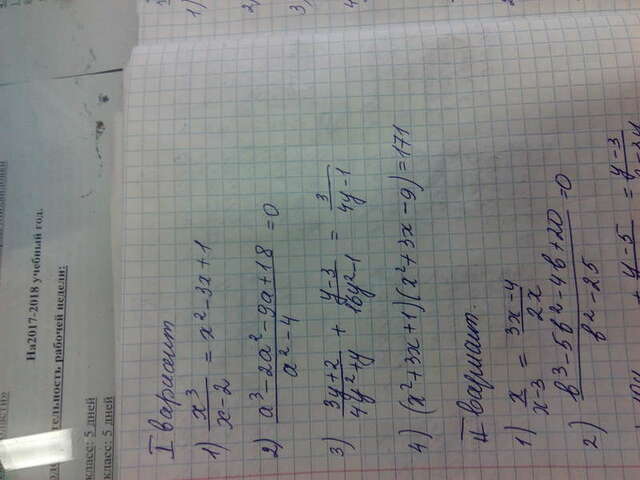 На2017-2018 учебный год.
тельность рабочей недели:
класс: 5 дней
класс: 5 дней
I вариант
1) x³/(x-2) = x²-3x+1
2) (a³-2a²-9a+18)/(a²-4) = 0
3) (3y+2)/(4y²+y) + (y-3)/(16y²-1) = 3/(4y-1)
4) (x²+3x+1)(x²+3x-9)=171
II вариант.
1) x/(x-3) = (3x-4)/2x
2) (b³-5b²-4b+20)/(b²-25) = 0